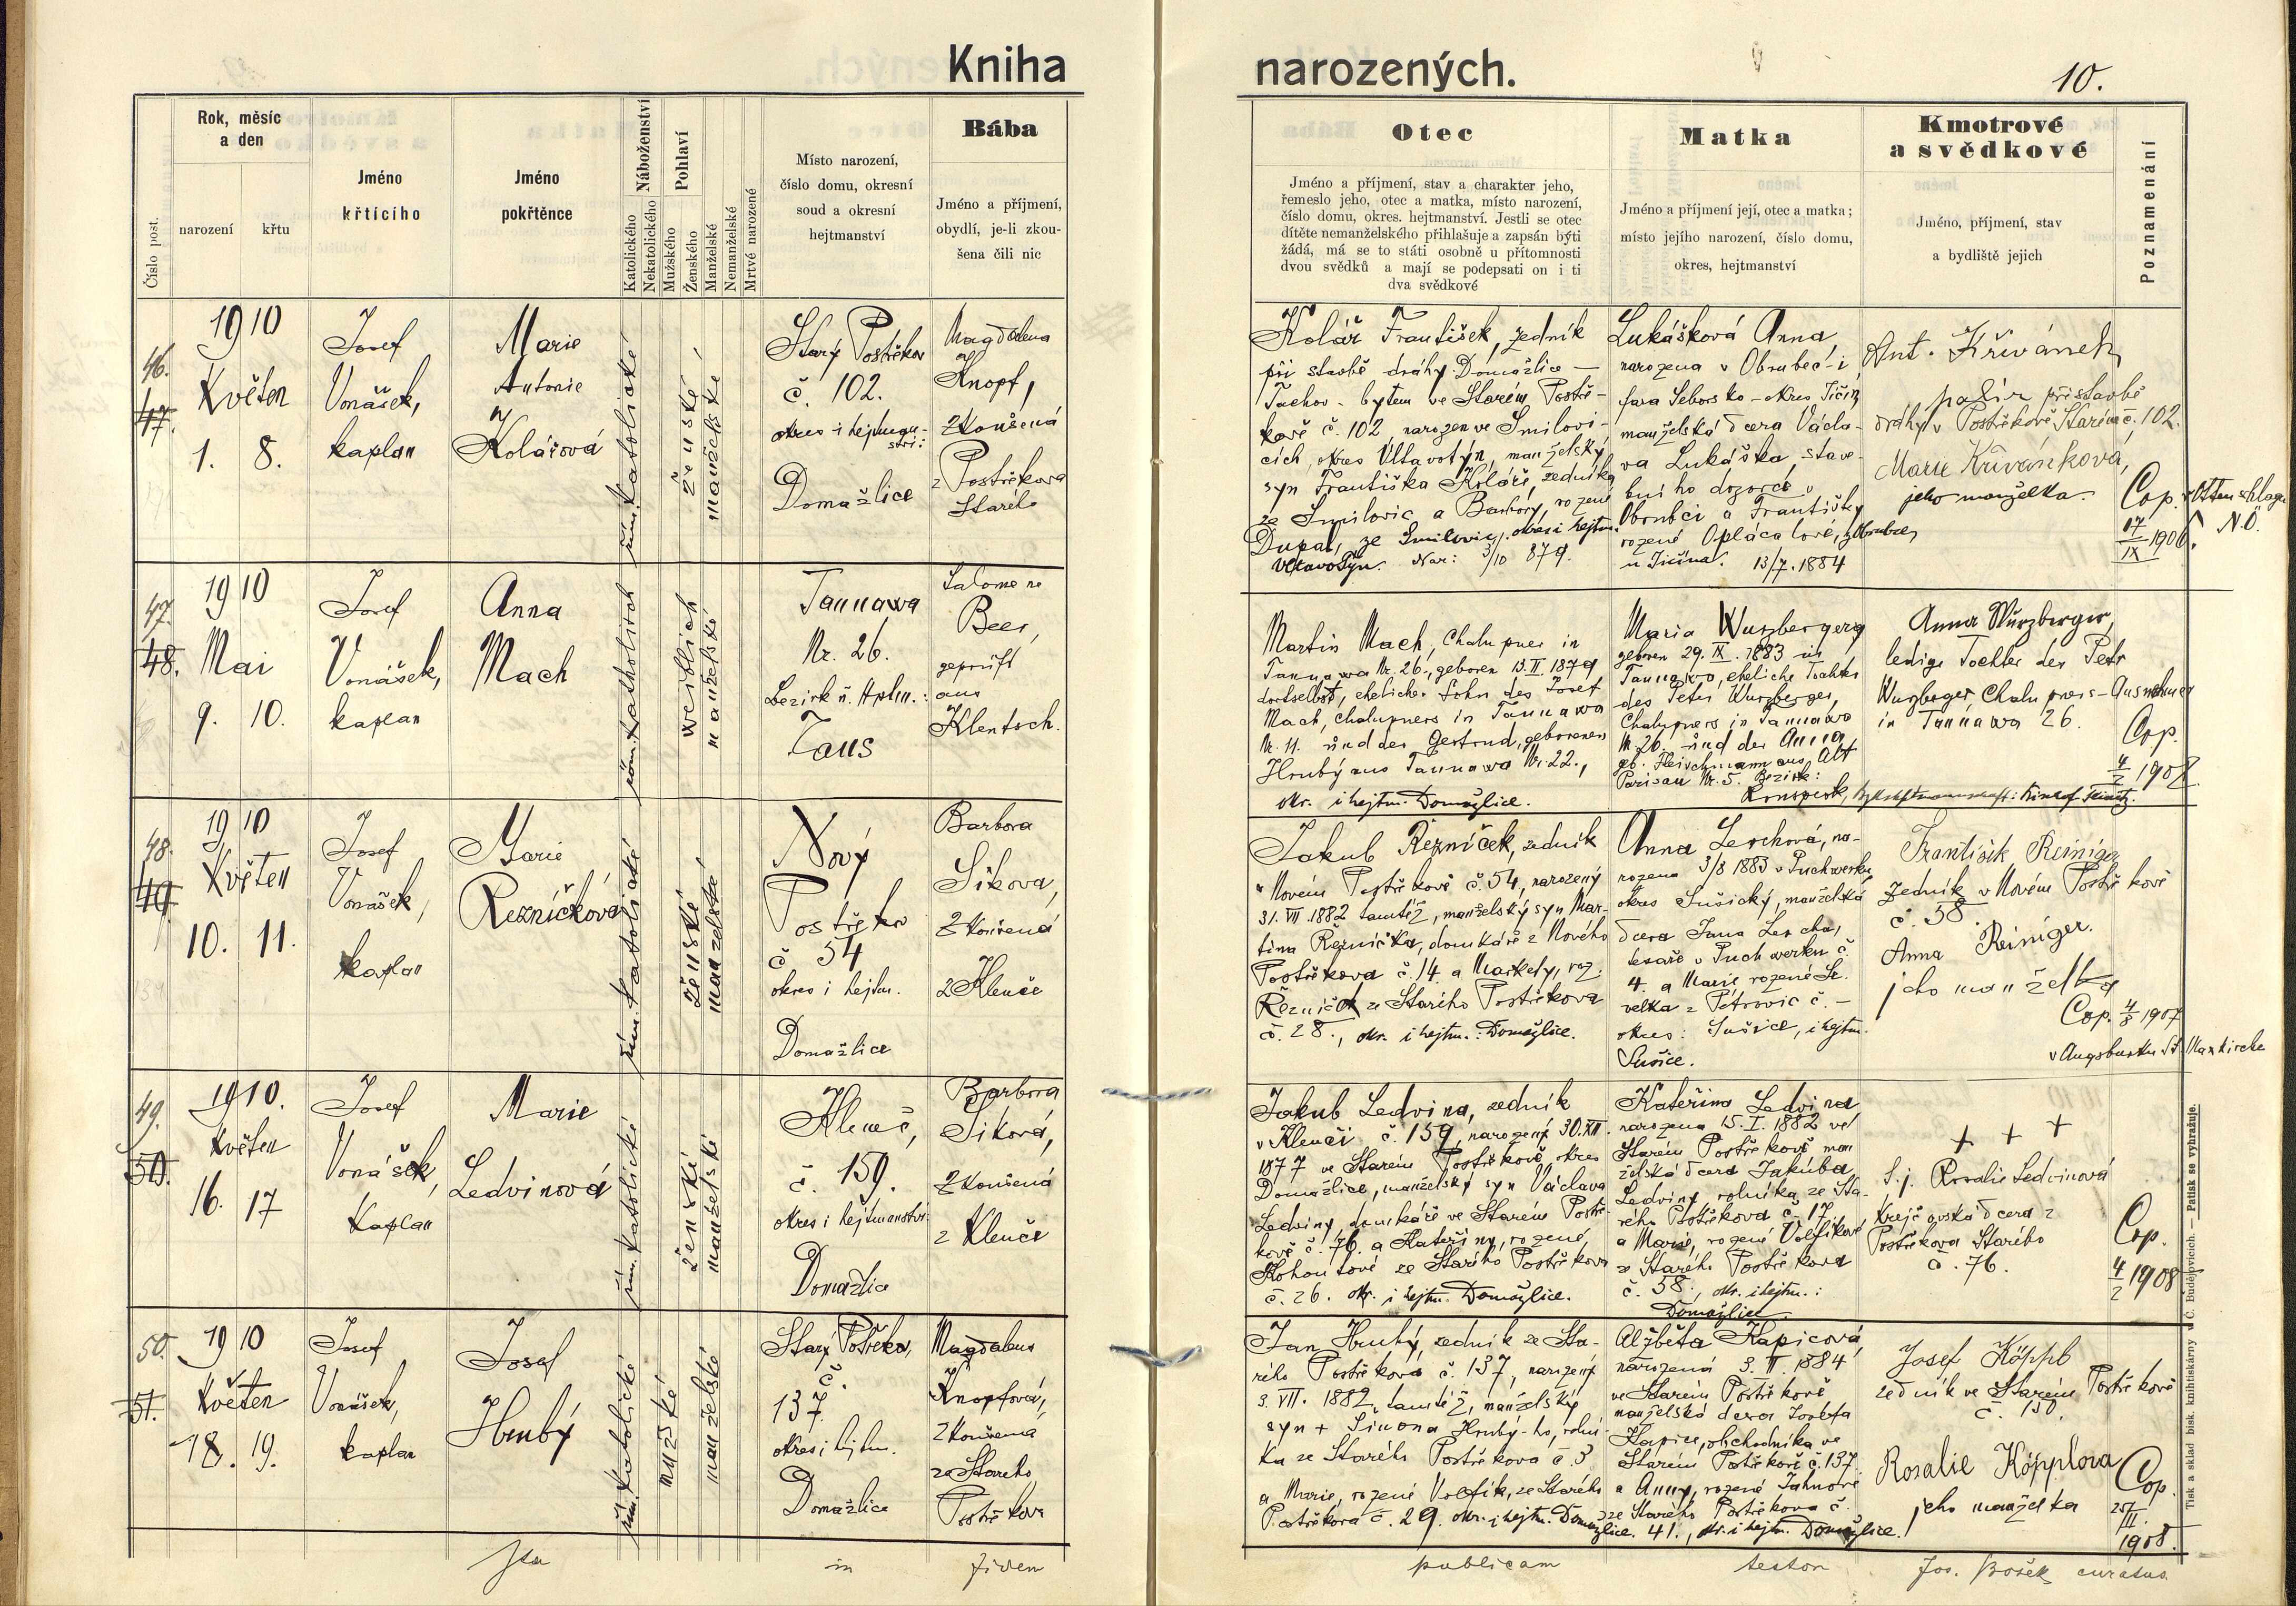 Kniha narozených.
10.
Číslo post.
Rok, měsíc
a den
narození
křtu
Jméno
křtícího
Jméno
pokřtěnce
Náboženství
Katolického
Nekatolického
Pohlaví
Mužského
Ženského
Manželské
Nemanželské
Mrtvé narozené
Místo narození,
číslo domu, okresní
soud a okresní
hejtmanství
Bába
Jméno a příjmení,
obydlí, je-li zkou-
šena čili nic
Otec
Jméno a příjmení, stav a charakter jeho,
řemeslo jeho, otec a matka, místo narození,
číslo domu, okres. hejtmanství. Jestli se otec
dítěte nemanželského přihlašuje a zapsán býti
žádá, má se to státi osobně u přítomnosti
dvou svědků a mají se podepsati on i ti
dva svědkové
Matka
Jméno a příjmení její, otec a matka;
místo jejího narození, číslo domu,
okres, hejtmanství
Kmotrové
a svědkové
Jméno, příjmení, stav
a bydliště jejich
Poznamenání
46.
47.
1910
Květen
1. 8.
Josef
Vonášek,
kaplan
Marie
Antonie
Kolářová
řím. katolické
ženské
manželské
Starý Postřekov
č. 102.
okres i hejtman-
ství:
Domažlice
Magdalena
Knopf,
zkoušená
z Postřekova
Starého
Kolář František, zedník
při stavbě dráhy Domažlice —
Tachov - bytem ve Starém Postře-
kově č. 102, narozen ve Smilovi-
cích, okres Vltavotýn, manželský
syn Františka Koláře, zedníka
ze Smilovic a Barbory, rozené
Dupal, ze Smilovic, okres i hejtm.
Vltavotýn. Nar: 3/10 879.
Lukášková Anna,
narozena v Obrubec-i
fara Seborsko - okres Jičín,
manželská dcera Václa-
va Lukáška, stave-
bního dozorce v
Obrubci a Františky
rozené Oplácalové, z Obrubec,
u Jičína. 13/7. 1884
Ant. Křivánek,
palír při stavbě
dráhy v Postřekově Starém č. 102.
Marie Křivánková,
jeho manželka.
Cop. v Ottenschlagu
N.Ö.
17/IX 1906.
47.
48.
1910
Mai
9. 10.
Josef
Vonášek,
kaplan
Anna
Mach
röm. katholisch
weiblich
manželské
Tannawa
Nr. 26.
Bezirk u. Hptm.:
Taus
Beer,
geprüft
aus
Klentsch.
Martin Mach, Chalupner in
Tannawa Nr. 26., geboren 13. II. 1879
dortselbst, ehelicher Sohn des Josef
Mach, Chalupners in Tannawa
Nr. 11. und der Gertrud, geborenen
Hrubý aus Tannawa Nr. 22.,
okr. i hejtm. Domažlice.
Maria Wurzbergerg
geboren 29. IX. 1883 in
Tannawa, eheliche Tochter
des Peter Wurzberger,
Chalupners in Tannawa
Nr. 26. und der Anna
gb. Fleischmann aus Alt
Parisau Nr. 5. Bezirk:
Ronsperk,
Anna Würzberger,
ledige Tochter des Petr
Wurzberger Chalupners-Ausnehmer
in Tannawa 26.
Cop.
4/2 1908
48.
49.
1910
Květen
10. 11.
Josef
Vonášek,
kaplan
Marie
Rezníčková
řím. katolické
ženské
manželské
Nový
Postřekov
č 54
okres i hejtm.
Domažlice
Barbora
Síková,
zkoušená
z Klenče
Jakub Řezníček, zedník
v Novém Postřekově č. 54, narozený
31. VII. 1882 tamtéž, manželský syn Mar-
tina Řezníčka, domkáře z Nového
Postřekova č. 14 a Markety, roz.
Řezníček ze Starého Postřekova
č. 28., okr. i hejtm.: Domažlice.
Anna Lerchová, na-
rozena 3/8 1883 v Puchwerku,
okres Sušický, manželská
dcera Jana Lercha,
tesaře v Puchwerku č.
4. a Marie rozené Se-
velka z Petrovic č. —
okres: Sušice, i hejtm.
Sušice.
František Reiniger
zedník v Novém Postřekově
č. 58.
Anna Reiniger.
jeho manželka
Cop. 4/8 1907
v Augsburku St. Maxkirche
49.
50.
1910.
Květen
16. 17
Josef
Vonášek,
Kaplan
Marie
Ledvinová
řím. katolické
ženské
manželské
Kleneč,
č. 159.
okres i hejtmanství:
Domažlice
Barbora
Síková,
zkoušená
z Klenče
Jakub Ledvina, zedník
v Klenči č. 159, narozený 30. XII.
1877 ve Starém Postřekově okres
Domažlice, manželský syn Václava
Ledviny, domkáře ve Starém Postře-
kově č. 76. a Kateřiny, rozené
Kohoutové ze Starého Postřekova
č. 26. okr. i hejtm. Domažlice.
Kateřina Ledvina,
narozena 15. I. 1882 ve
Starém Postřekově man
želská dcera Jakuba
Ledviny, rolníka ze Sta-
rého Postřekova č. 17,
a Marie, rozené Volfíkové
ze Starého Postřekova
č. 58., okr. i hejtm.:
Domažlice.
+ + +
S.j. Rosalie Ledvinová
krejčovská dcera z
Postřekova Starého
č. 76.
Cop.
4/2 1908
50.
51.
1910
Květen
18. 19.
Josef
Vonášek,
kaplan
Josef
Hrubý
řím. katolické
mužské
manželské
Starý Postřekov,
č.
137.
okres i hejtm.
Domažlice
Magdalena
Knopfová,
zkoušená
ze Starého
Postřekova
Jan Hrubý, zedník ze Sta-
rého Postřekova č. 137, narozený
3. VII. 1882, tamtéž, manželský
syn + Šimona Hrubý-ho, rolní-
ka ze Starého Postřekova č. 3
a Marie, rozené Volfík, ze Starého
Postřekova č. 29. okr. i hejtm. Domažlice.
Alžběta Kapicová,
narozená 3. II. 1884
ve Starém Postřekově
manželská dcera Josefa
Kapice, obchodníka ve
Starém Postřekově č. 137.
a Anny, rozené Jahnové
ze Starého Postřekova č.
41., okr. i hejtm. Domažlice.
Josef Köppl
zedník ve Starém Postřekově
č. 150.
Rosalie Köpplova
jeho manželka
Cop.
25/II.
1908.
Ita in fidem publicam testor Jos. Bošek curatus.
Tisk a sklad bisk. knihtiskárny v Č. Budějovicích. — Patisk se vyhražuje.